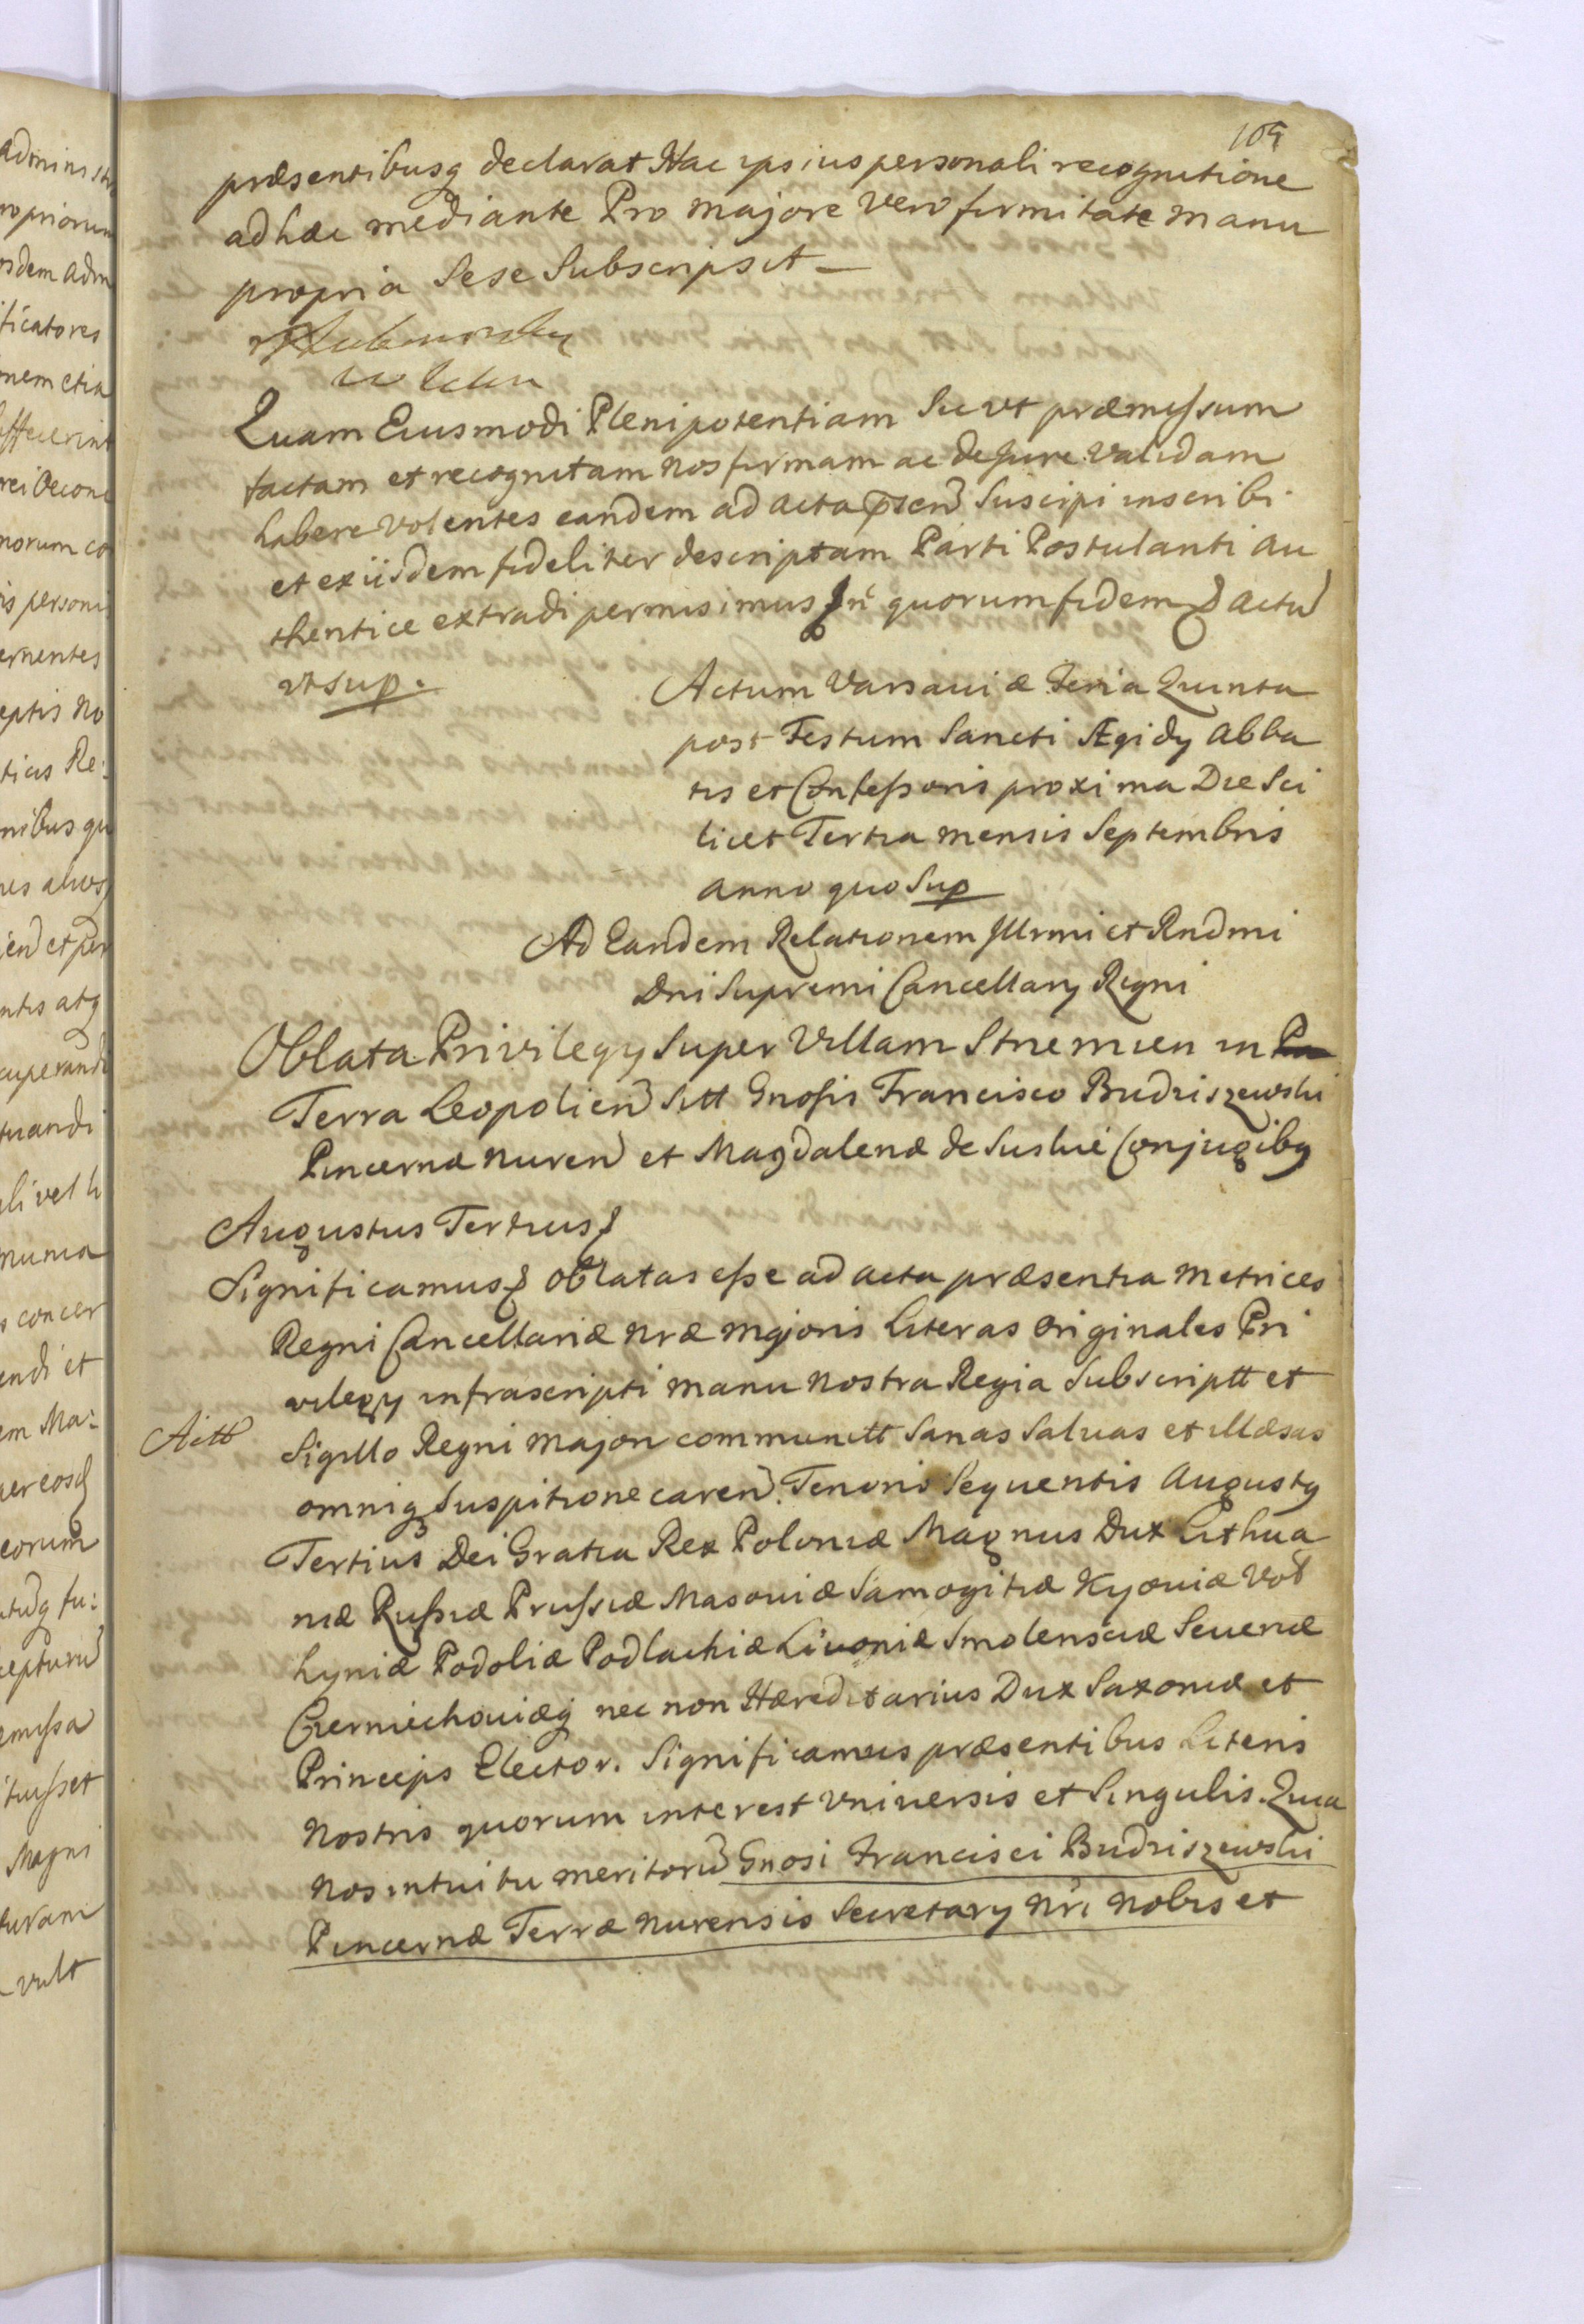 109
præsentibusq declarat Hac ipsius personali recognitione
ad hæc mediante Pro majore vero firmitate manu
propria Sese Subscripsit —
Quam Eiusmodi Plenipotentiam Sic vt præmissum
factam et recognitam nos firmam ac de Jure validam
habere volentes eandem ad acta pscn Suscipi inscribi
et ex iisdem fideliter descriptam Parti Postulanti au
thentice extradi permisimus In quorum fidem Actu
vt sup.
Actum Varsauiæ Feria Quinta
post Festum Sancti Ægidy Abba
tis et Confessoris proxima Die Sci
licet Tertia mensis Septembris
Anno quo Sup
Ad Eandem Relationem Illrmi et Rndmi
Dni Supremi Cancellary Regni
Oblata Privilegy Super Villam Strzemien in Pa
Terra Leopolien Sitt Gnosis Francisco Budziszewski
Pincernæ Nuren et Magdalenæ de Suskie Conjugibq
Augustus Tertius
Significamus Oblatas esse ad acta præsentia Metrices
Regni Cancellariæ nræ Majoris Literas Originales Pri
vilegy infrascripti manu nostra Regia Subscriptt et
Actt
Sigillo Regni Majori communitt Sanas Saluas et illæsas
omniq Suspitione caren. Tenoris Sequentis Augustq
Tertius Dei Gratia Rex Poloniæ Magnus Dux Lithua
niæ Russiæ Prussiæ Masouiæ Samogitiæ Kyouiæ Vol
hyniæ Podoliæ Podlachiæ Livoniæ Smolensciæ Seueriæ
Czerniechouiæq nec non Hæreditarius Dux Saxoniæ et
Princeps Elector. Significamus præsentibus Literis
Nostris quorum interest Vniuersis et Singulis. Quia
Nos intuitu meritoru Gnosi Francisci Budziszewski
Pincernæ Terræ Nurensis Secretary Nri Nobis et